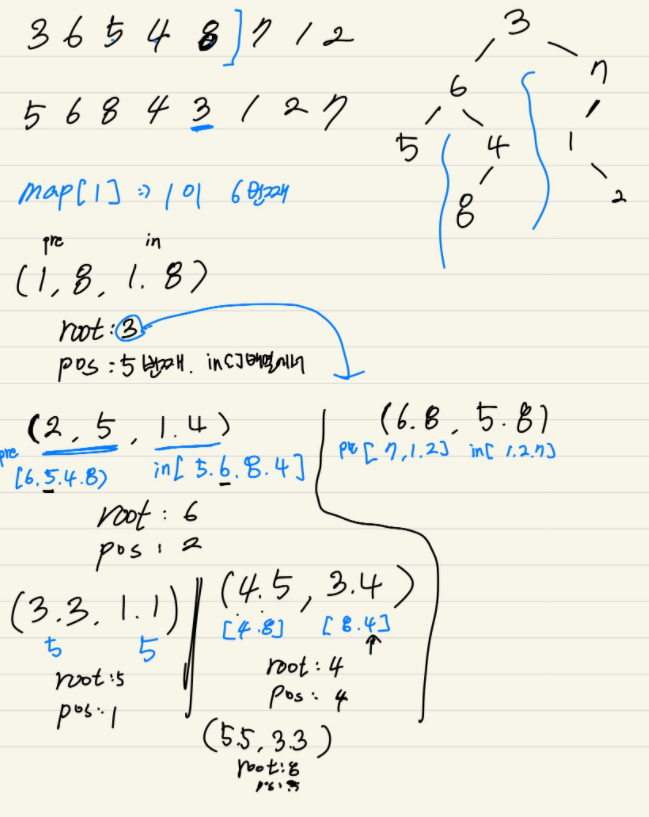 3 6 5 4 8 ] 7 1 2
5 6 8 4 3 1 2 7
map[1] => 1이 6번째
pre in
(1, 8, 1. 8)
root: 3
pos : 5번째. in[]배열에서
(2, 5, 1.4)
pre [6.5.4.8) in[ 5.6.8.4]
root : 6
pos : 2
(3.3. 1.1)
5 5
root:5
pos:1
(4.5, 3.4)
[4.8] [8.4]
root: 4
pos: 4
(5.5, 3.3)
root:8
(6.8, 5.8)
pre [ 7,1.2] in[ 1.2.7]
3
6 7
5 4 1
8 2